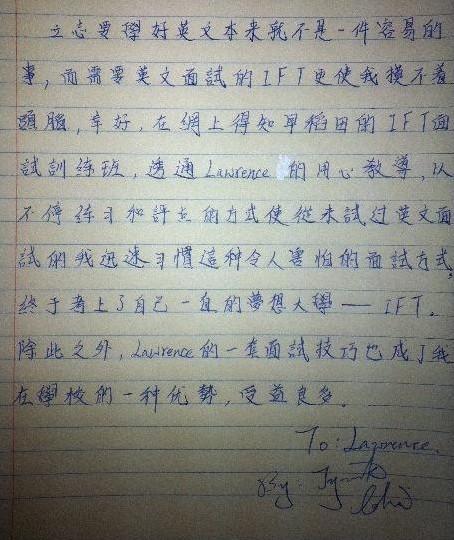 立志要學好英文本來就不是一件容易的
事，而需要英文面試的IFT更使我摸不着
頭腦，幸好，在網上得知早稻田的IFT面
試訓练班，透通Lawrence的用心教導，以
不停练习和評点的方式使從未試过英文面
試的我迅速习慣這种令人害怕的面試方式，
终于考上了自己一直的夢想大學——IFT。
除此之外，Lawrence的一套面試技巧也成了我
在學校的一种优勢，受益良多。
To: Lawrence.
By: